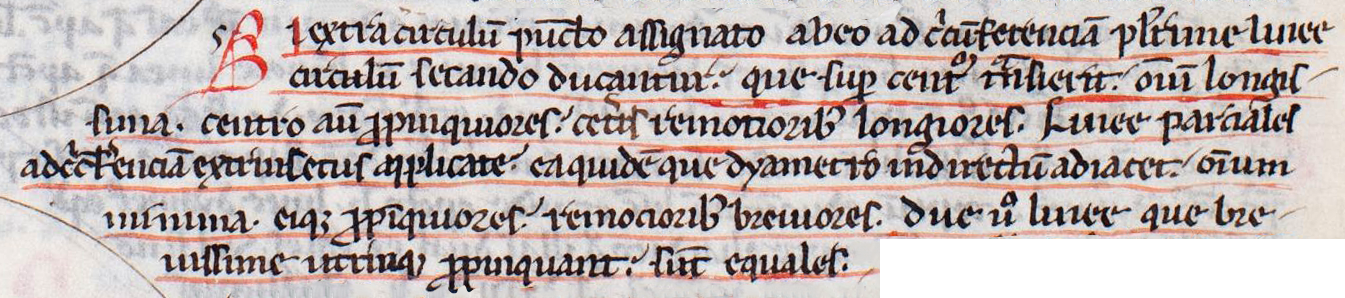 Si extra circulũ pũcto assignato ab eo ad c̉cũferenciã pl̉rime linee
circulũ secando ducantur: que sup centꝰ tͣnsierit: oĩu longis
sima. centro aũ ꝓpinquiores: cet̉is remotiorib longiores. Linee parciales
ad c̉cũferenciã extrinsecus applicate: ea quidẽ que dyametro in directũ adiacet: oĩum
minima. eiqꝫ ꝓpĩquiores: remocioriƀ breuiores. Due uͦ linee que bre
uissime utrinqꝫ ꝓpinquant: sũt equales.